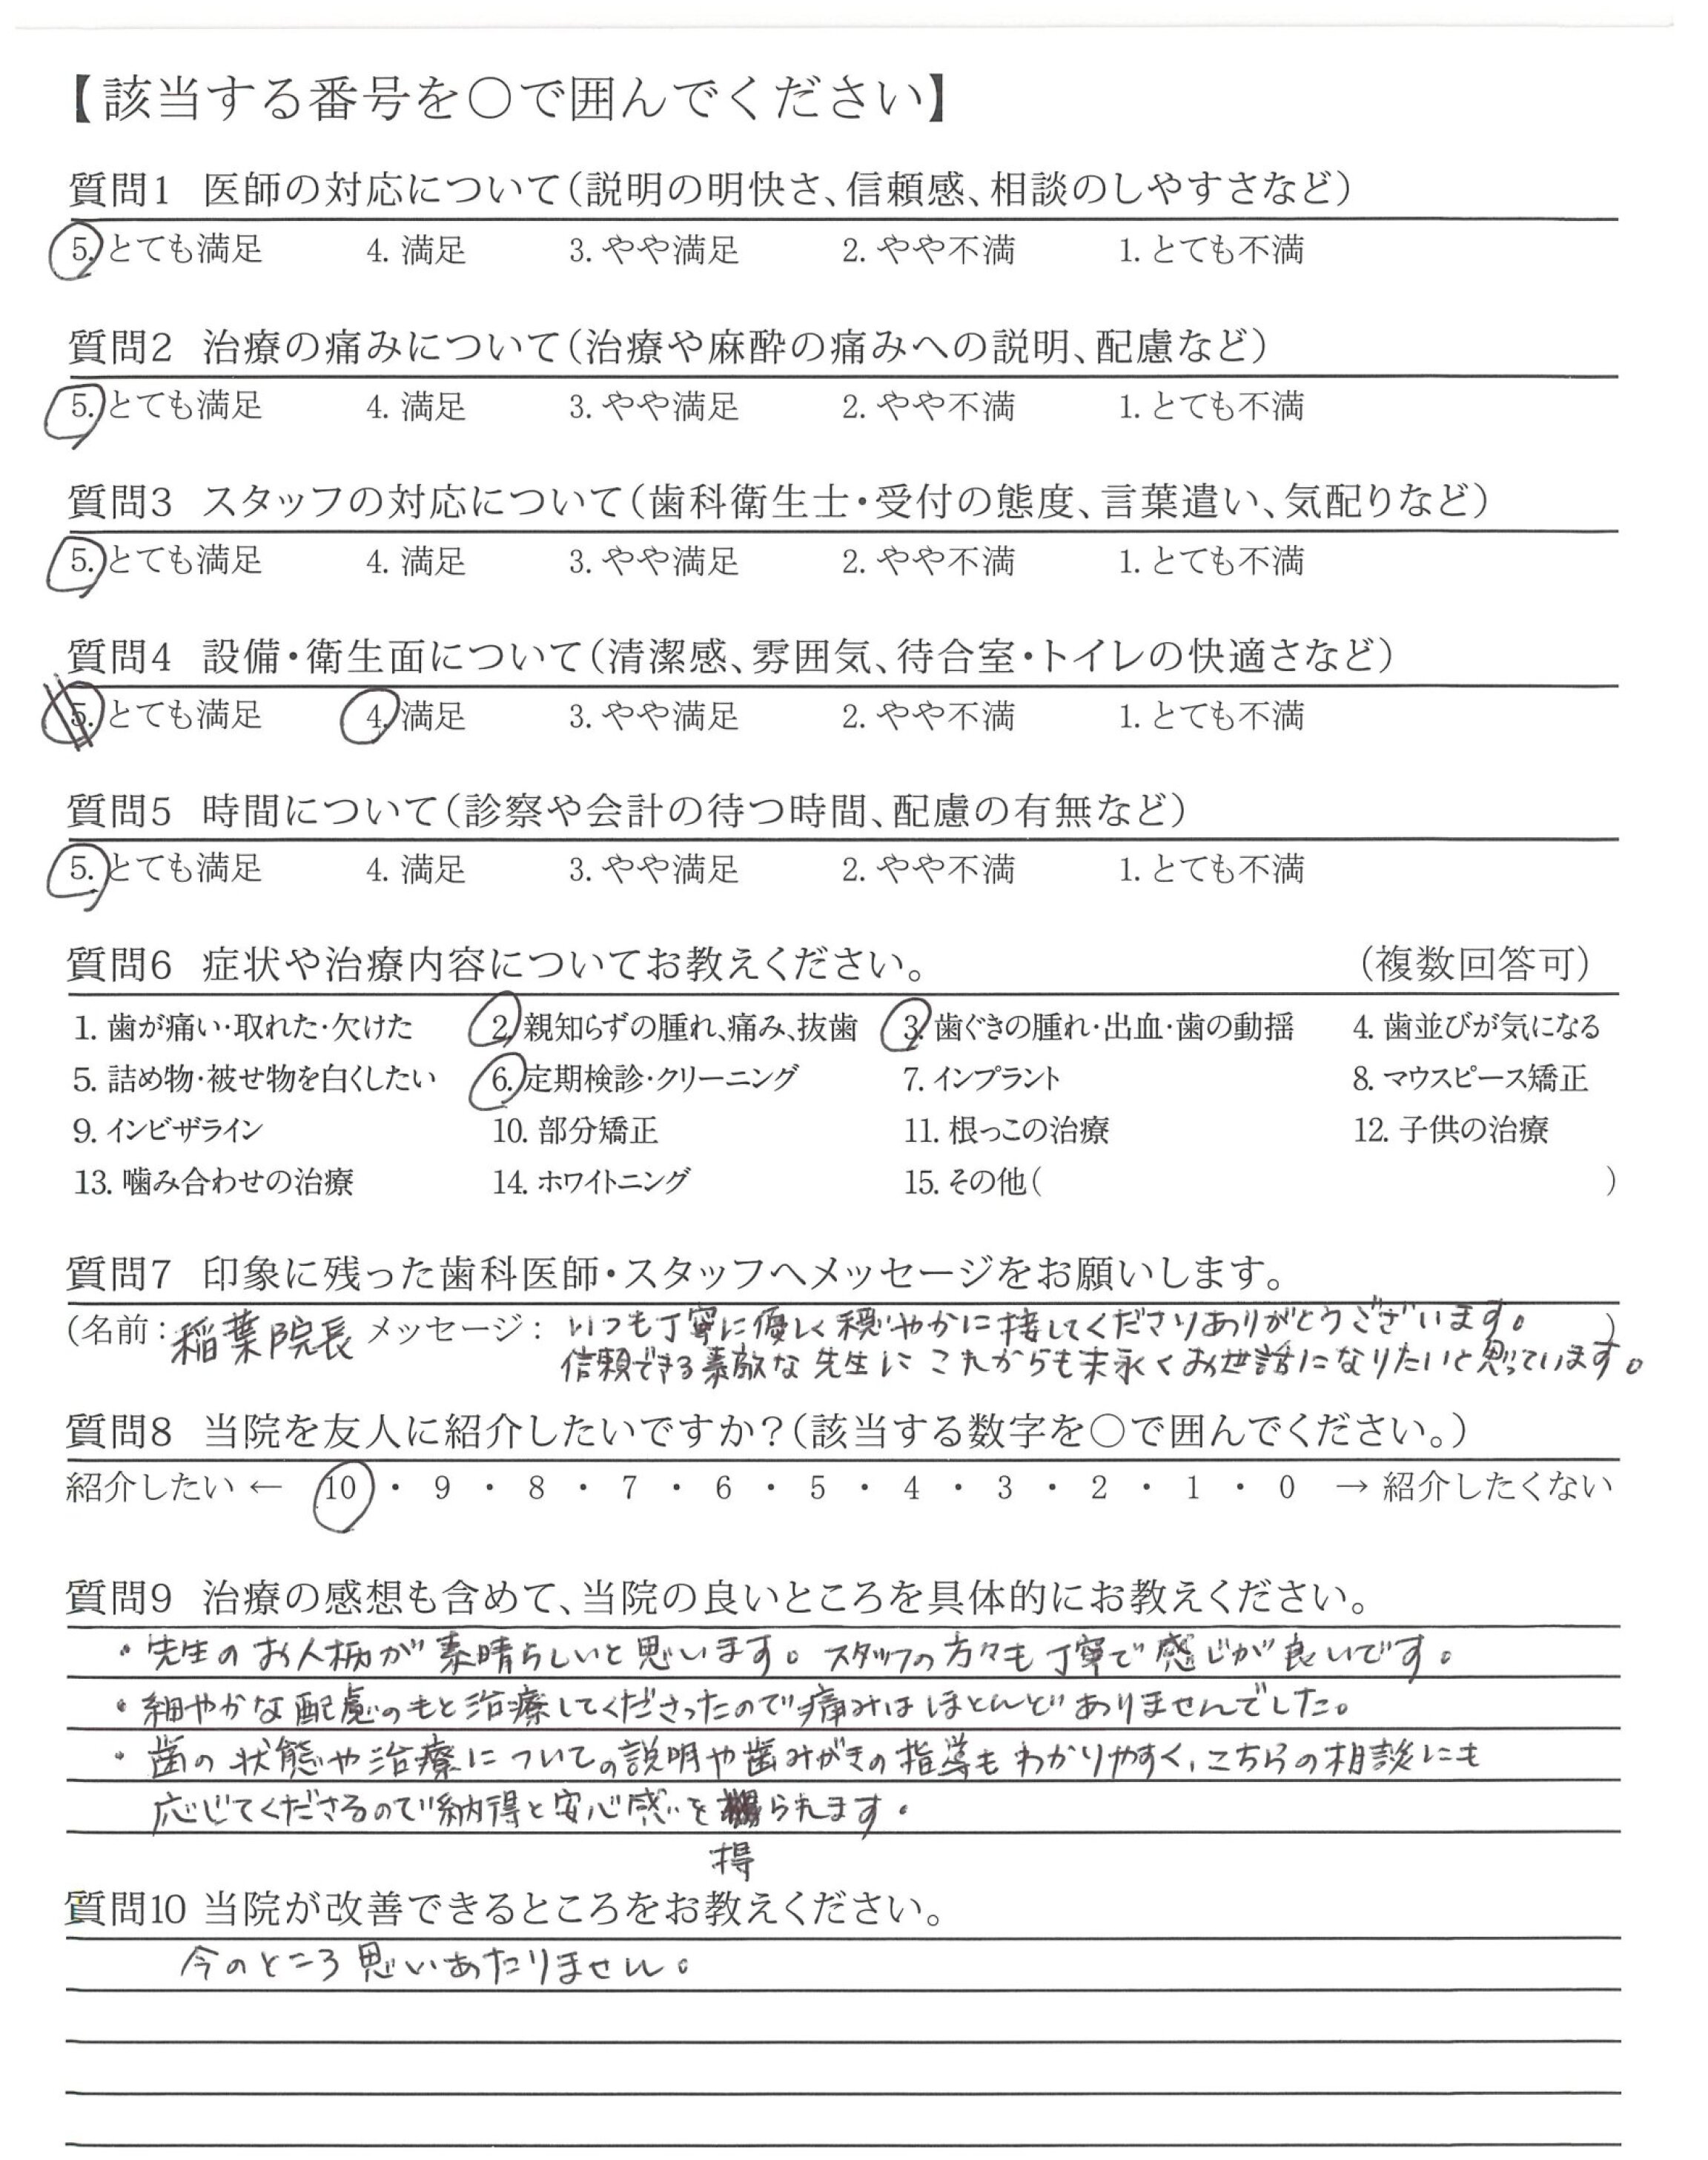 【該当する番号を○で囲んでください】
質問1 医師の対応について(説明の明快さ、信頼感、相談のしやすさなど)
5. とても満足 4. 満足 3. やや満足 2. やや不満 1. とても不満
質問2 治療の痛みについて(治療や麻酔の痛みへの説明、配慮など)
5. とても満足 4. 満足 3. やや満足 2. やや不満 1. とても不満
質問3 スタッフの対応について(歯科衛生士・受付の態度、言葉遣い、気配りなど)
5. とても満足 4. 満足 3. やや満足 2. やや不満 1. とても不満
質問4 設備・衛生面について(清潔感、雰囲気、待合室・トイレの快適さなど)
5. とても満足 4. 満足 3. やや満足 2. やや不満 1. とても不満
質問5 時間について(診察や会計の待つ時間、配慮の有無など)
5. とても満足 4. 満足 3. やや満足 2. やや不満 1. とても不満
質問6 症状や治療内容についてお教えください。 (複数回答可)
1. 歯が痛い・取れた・欠けた 2. 親知らずの腫れ、痛み、抜歯 3. 歯ぐきの腫れ・出血・歯の動揺 4. 歯並びが気になる
5. 詰め物・被せ物を白くしたい 6. 定期検診・クリーニング 7. インプラント 8. マウスピース矯正
9. インビザライン 10. 部分矯正 11. 根っこの治療 12. 子供の治療
13. 噛み合わせの治療 14. ホワイトニング 15. その他( )
質問7 印象に残った歯科医師・スタッフへメッセージをお願いします。
(名前:稲葉院長 メッセージ:いつも丁寧に優しく穏やかに接してくださりありがとうございます。)
信頼できる素敵な先生にこれからも末永くお世話になりたいと思っています。
質問8 当院を友人に紹介したいですか?(該当する数字を○で囲んでください。)
紹介したい ← 10 ・ 9 ・ 8 ・ 7 ・ 6 ・ 5 ・ 4 ・ 3 ・ 2 ・ 1 ・ 0 → 紹介したくない
質問9 治療の感想も含めて、当院の良いところを具体的にお教えください。
・先生のお人柄が素晴らしいと思います。スタッフの方々も丁寧で感じが良いです。
・細やかな配慮のもと治療してくださったので痛みはほとんどありませんでした。
・歯の状態や治療についての説明や歯みがきの指導もわかりやすく、こちらの相談にも
応じてくださるので納得と安心感を得られます。
質問10 当院が改善できるところをお教えください。
今のところ思いあたりません。